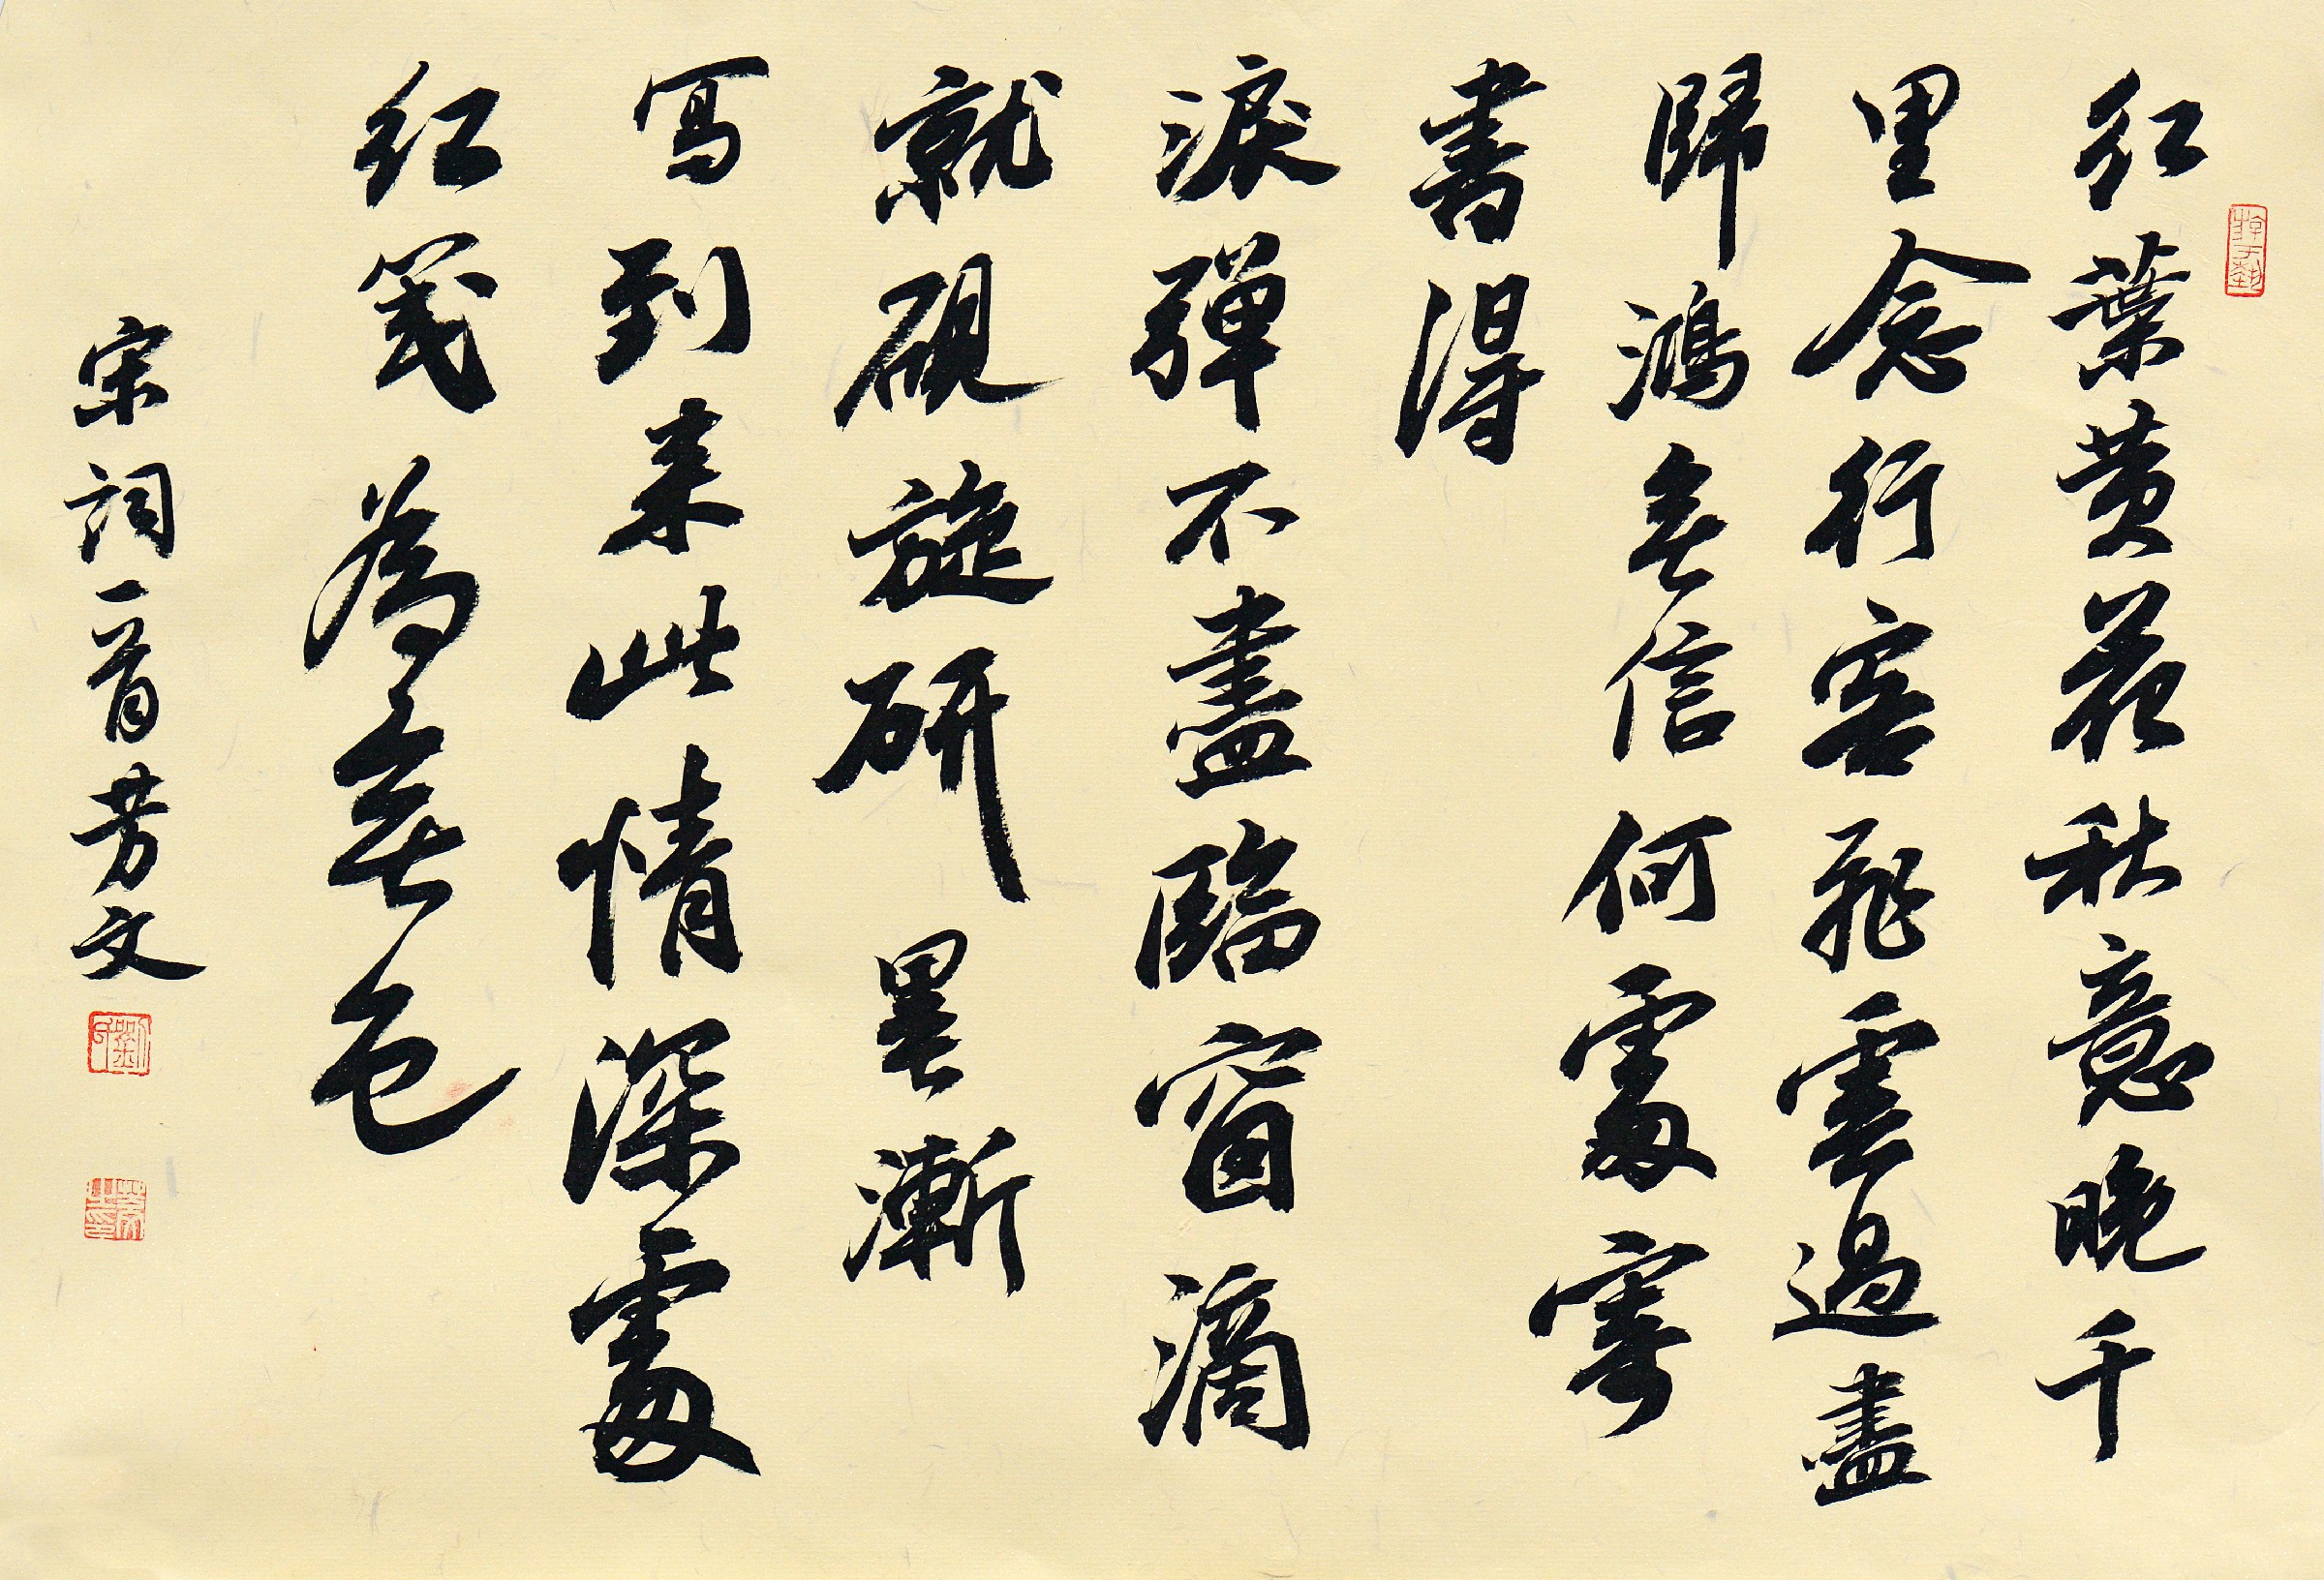 红葉黄花秋意晚千
里念行客飛雲過盡
歸鴻無信何處寄
書得
淚彈不盡臨窗滴
就硯旋研墨漸
寫到来此情深處
红箋為無色
宋詞一首芳文